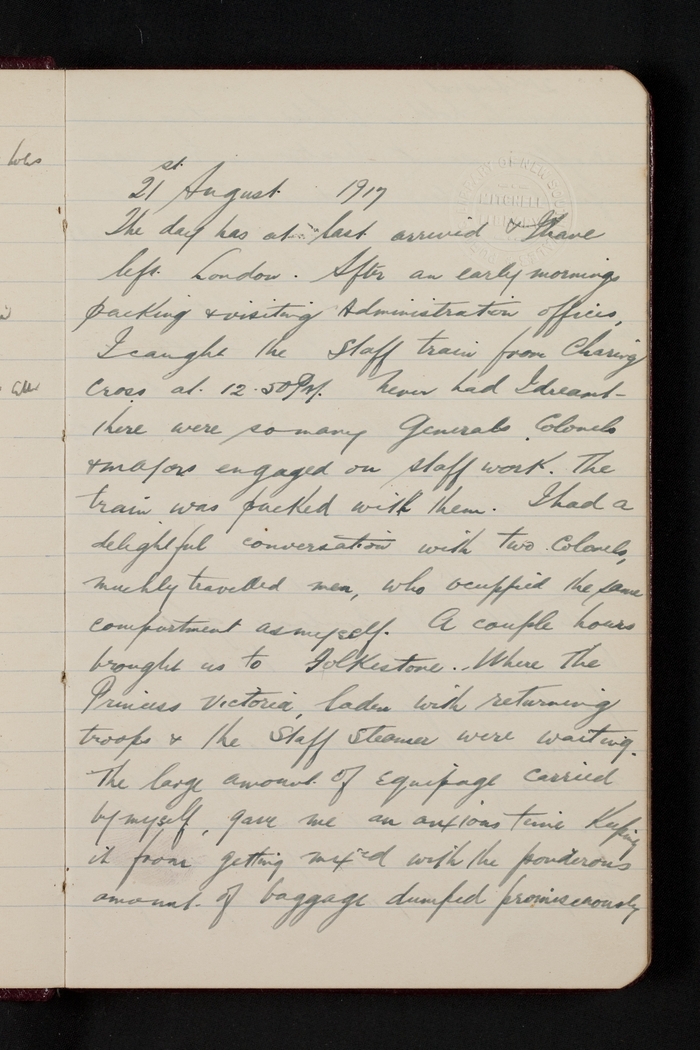 21st August 1917
The day has at last arrived & I have
left London. After an early mornings
packing & visiting Administration offices,
I caught the Staff train from Charing
Cross at 12.50 PM. Never had I dreamt
there were so many Generals Colonels
& majors engaged on staff work. The
train was packed with them. I had a
delightful conversation with two Colonels,
muchly travelled men, who ocuppied the same
compartment as myself. A couple hours
brought us to Folkestone. Where the
Princess Victoria, laden with returning
troops & the Staff Steamer were waiting.
The large amount of Equipage carried
by myself, gave me an anxious time Keeping
it from getting mixed with the ponderous
amount of baggage dumped promiscuously